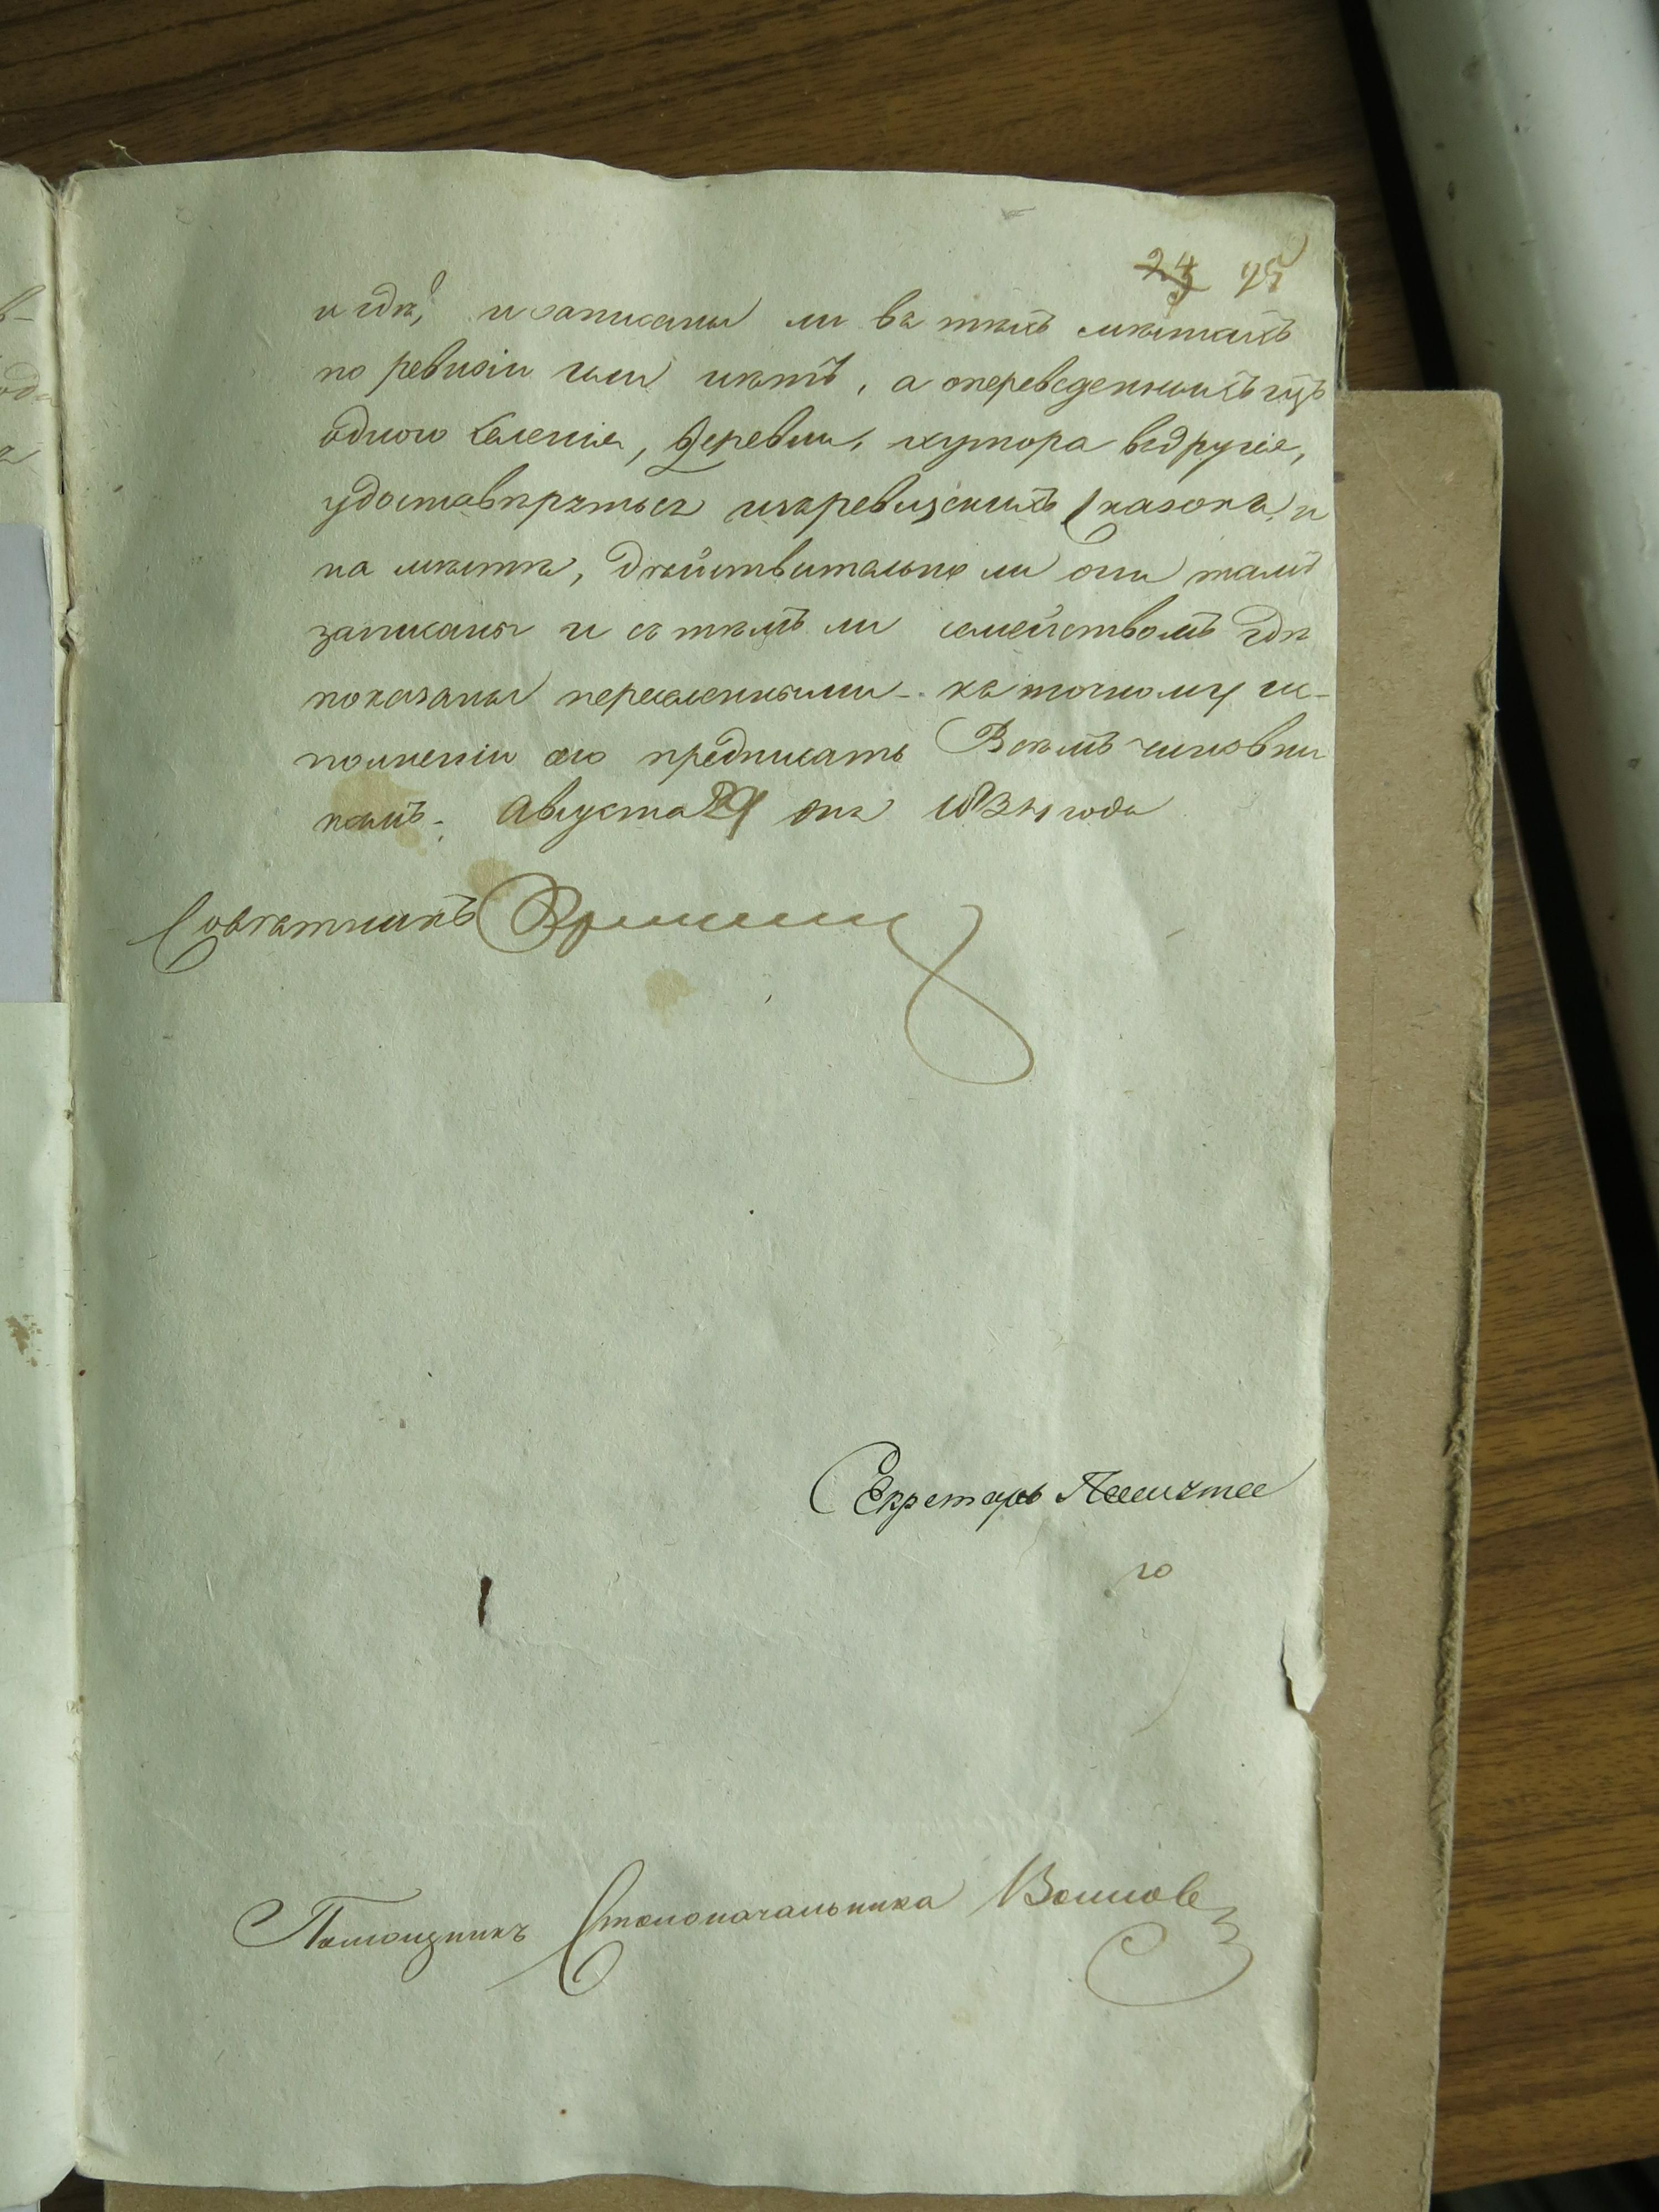 24 25
и гдѣ, и записаны ли въ тѣхъ мѣстахъ
по ревизіи или нѣтъ, а опереведенныхъ изъ
одного Селенія, деревни, хутора въ другіе,
удостовѣрѣться изъ ревизскихъ Сказокъ и
на мѣстѣ, дѣйствительно ли они тамъ
записаны и съ тѣмъ ли семействомъ гдѣ
показаны переселенными - къ точному ис-
полненію сего предписать Всѣмъ чиновни
камъ. Августа 29 дня 1834 года
Совѣтникъ
Секретарь
Помощникъ Столоначальника